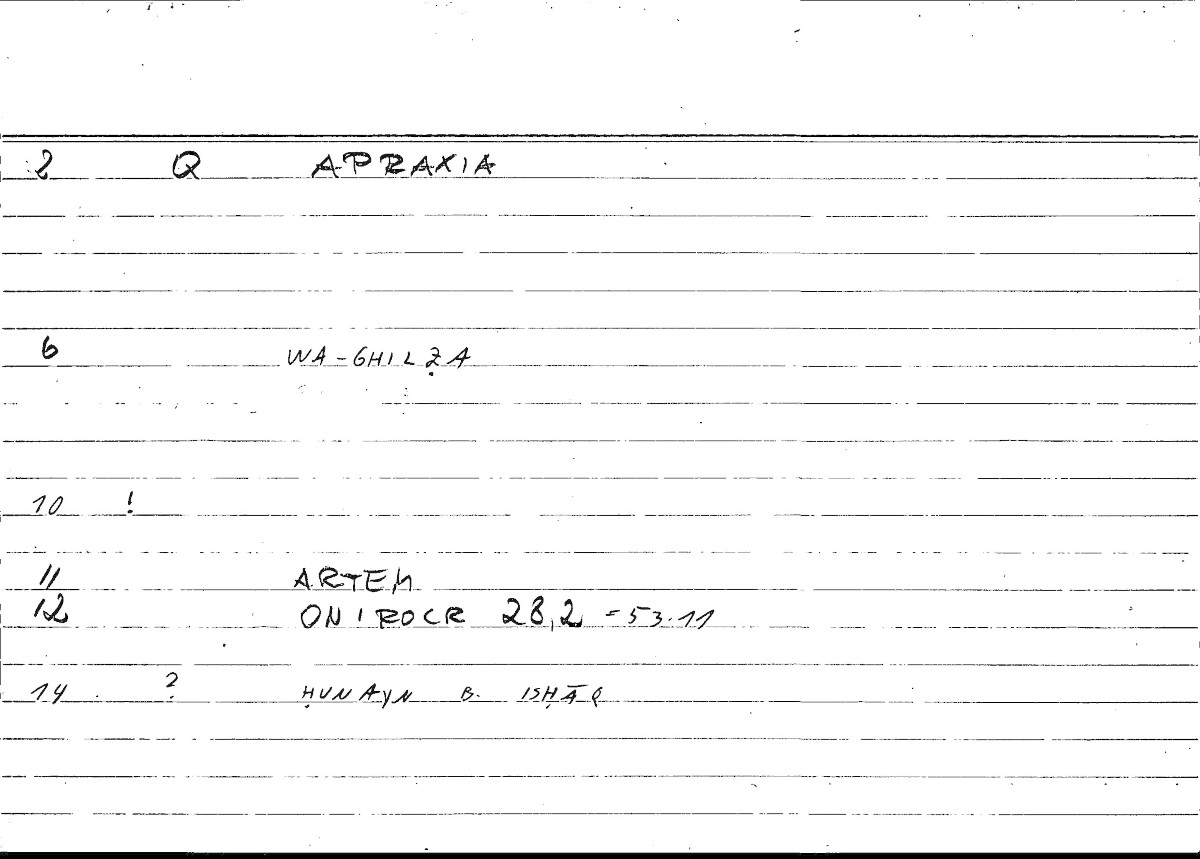 2 Q APRAXIA
6 WA-GHILẒA
10 !
11 ARTEM
12 ONIROCR 28,2 = 53.11
14 ? ḤUNAYN B. ISḤĀQ